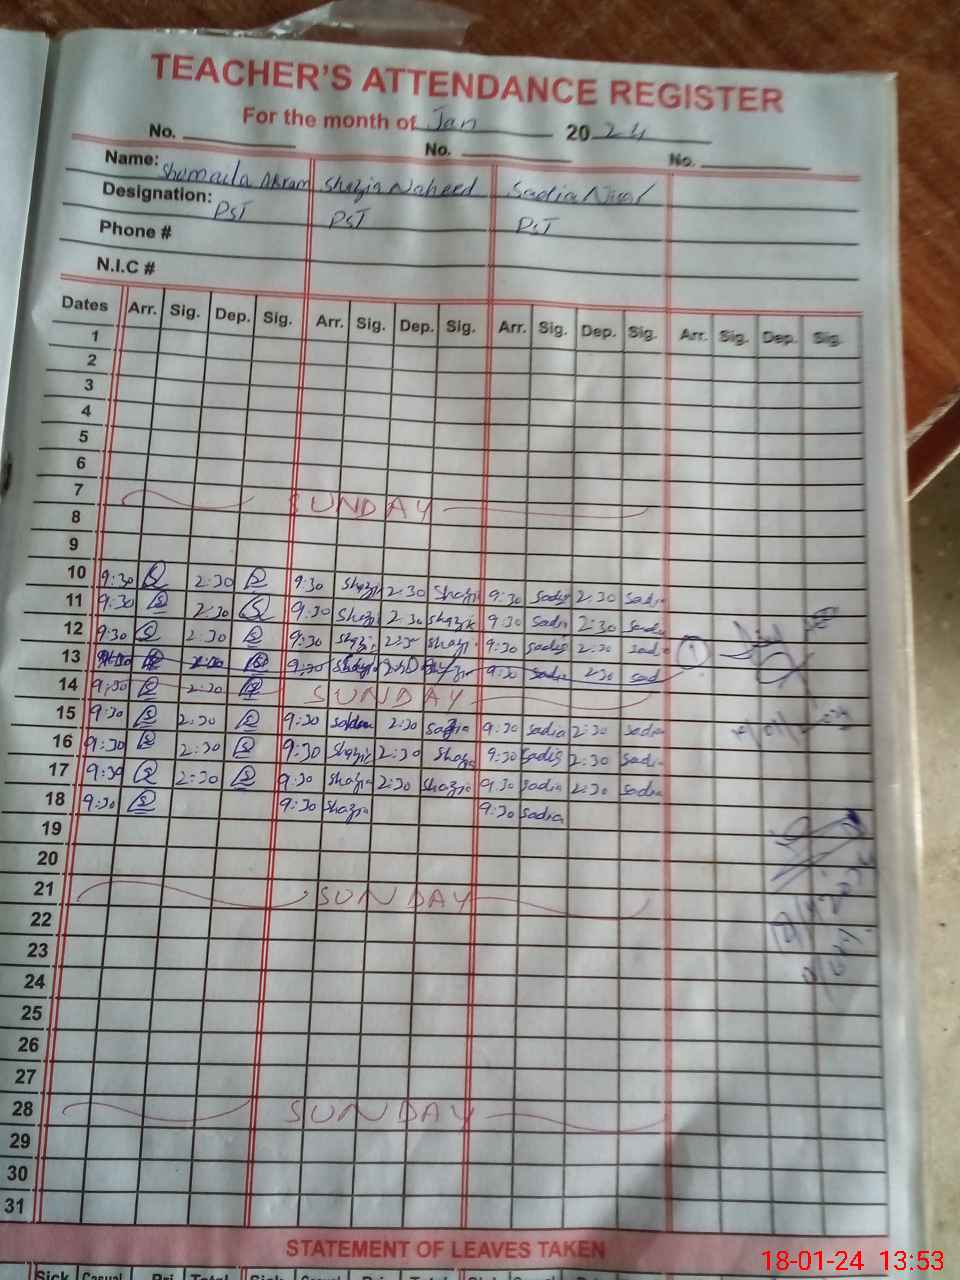 TEACHER'S ATTENDANCE REGISTER
For the month of Jan 2024
No. No. No.
Name: Shumaila Akram Shazia Naheed Sadia
Designation: PST PST PST
Phone #
N.I.C #
Dates Arr. Sig. Dep. Sig. Arr. Sig. Dep. Sig. Arr. Sig. Dep. Sig. Arr. Sig. Dep. Sig.
1
2
3
4
5
6
7 SUNDAY
8
9
10 9:30 2:30 9:30 Shazia 2:30 Shazia 9:30 Sadia 2:30 Sadia
11 9:30 2:30 9:30 Shazia 2:30 Shazia 9:30 Sadia 2:30 Sadia
12 9:30 2:30 9:30 Shazia 2:30 Shazia 9:30 Sadia 2:30 Sadia
13 9:30 Sadia 2:30 Sad
14 9:30 2:30 SUNDAY
15 9:30 2:30 9:30 2:30 9:30 Sadia 2:30 Sadia
16 9:30 2:30 9:30 Shazia 2:30 Shazia 9:30 Sadia 2:30 Sadia
17 9:30 2:30 9:30 Shazia 2:30 Shazia 9:30 Sadia 2:30 Sadia
18 9:30 9:30 Shazia 9:30 Sadia
19
20
21 SUNDAY
22
23
24
25
26
27
28 SUNDAY
29
30
31
STATEMENT OF LEAVES TAKEN
Sick Casual Pri Total Sick
18-01-24 13:53